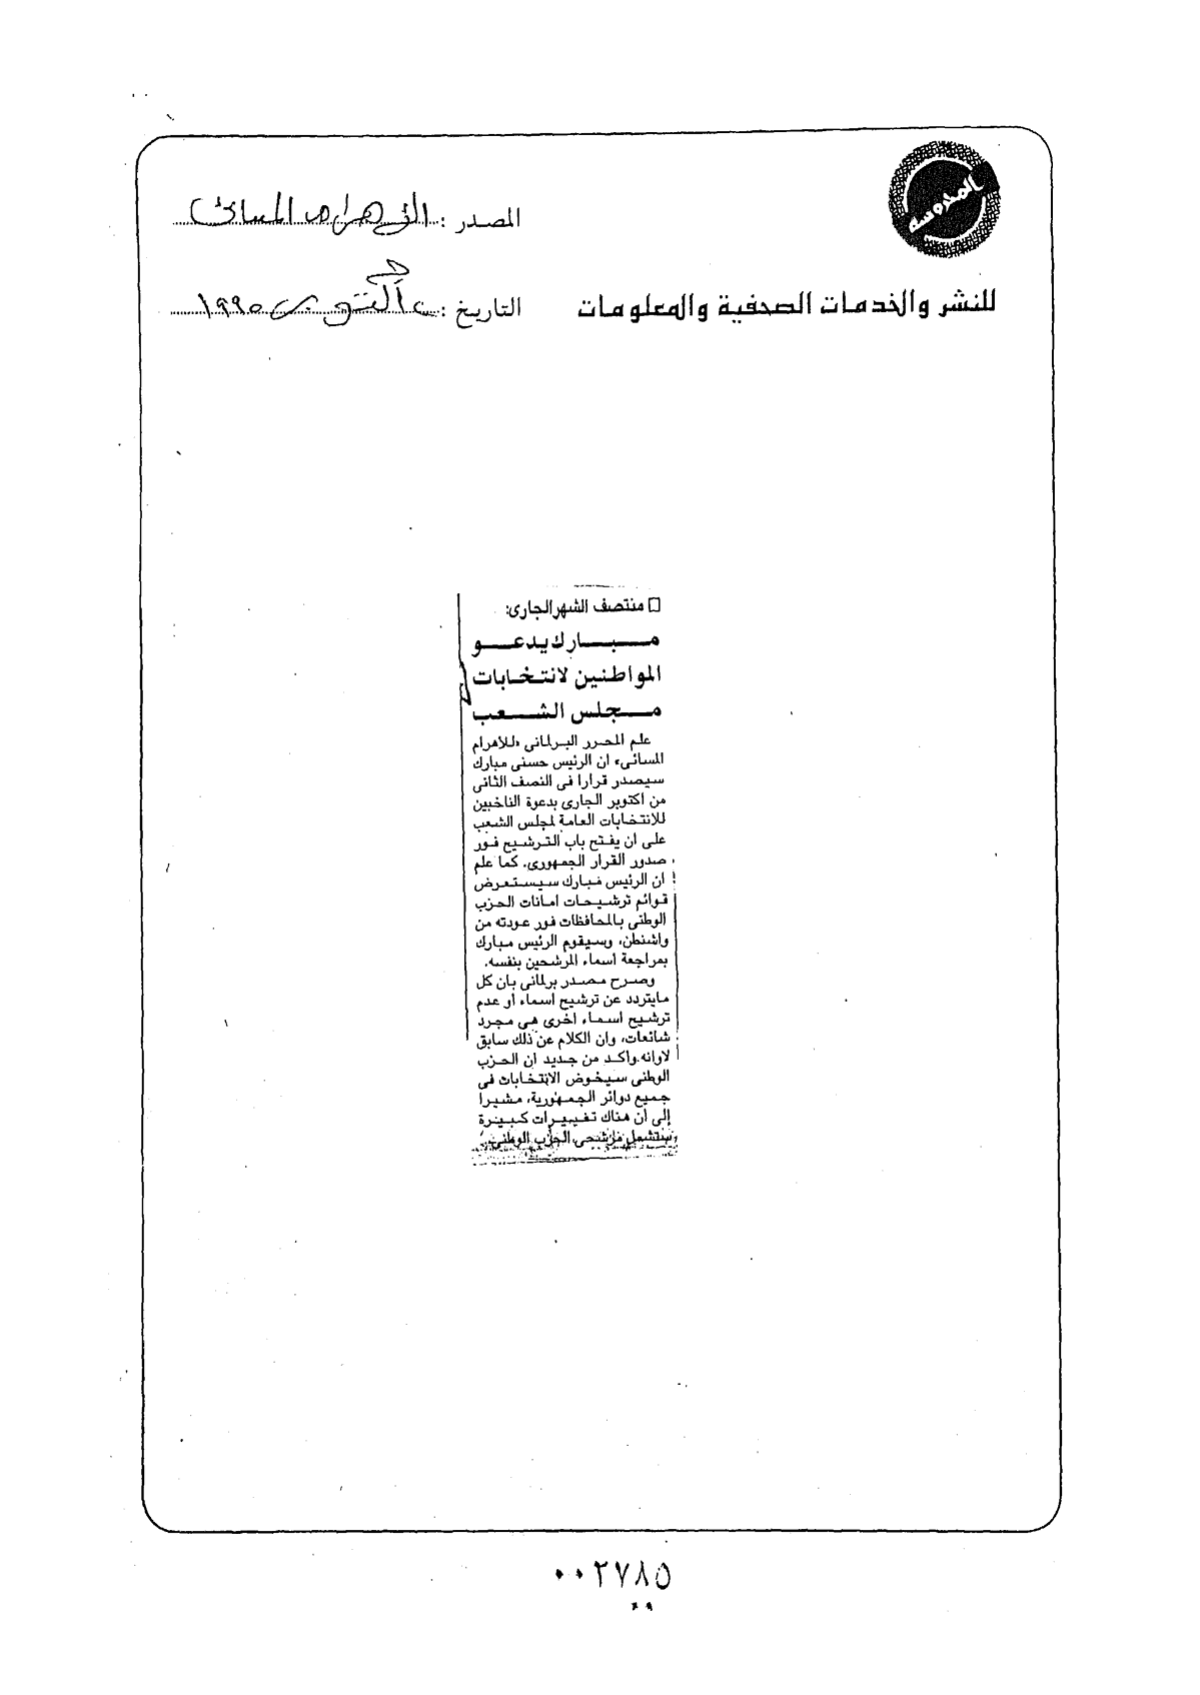 المدروسة
المصدر : الأهرام المسائى
للنشر والخدمات الصحفية والمعلومات
التاريخ : أكتوبر ١٩٩٥
□ منتصف الشهر الجارى:
مبارك يدعو
المواطنين لانتخابات
مجلس الشعب
علم المحرر البرلمانى «للاهرام
المسائى» ان الرئيس حسنى مبارك
سيصدر قرارا فى النصف الثانى
من اكتوبر الجارى بدعوة الناخبين
للانتخابات العامة لمجلس الشعب
على ان يفتح باب الترشيح فور
صدور القرار الجمهورى. كما علم
ان الرئيس مبارك سيستعرض
قوائم ترشيحات امانات الحزب
الوطنى بالمحافظات فور عودته من
واشنطن، وسيقوم الرئيس مبارك
بمراجعة اسماء المرشحين بنفسه.
وصرح مصدر برلمانى بان كل
مايتردد عن ترشيح اسماء او عدم
ترشيح اسماء اخرى هى مجرد
شائعات، وان الكلام عن ذلك سابق
لاوانه. واكد من جديد ان الحزب
الوطنى سيخوض الانتخابات فى
جميع دوائر الجمهورية، مشيرا
إلى ان هناك تغييرات كبيرة
ستشمل مرشحى الحزب الوطنى.
٠٠٢٧٨٥